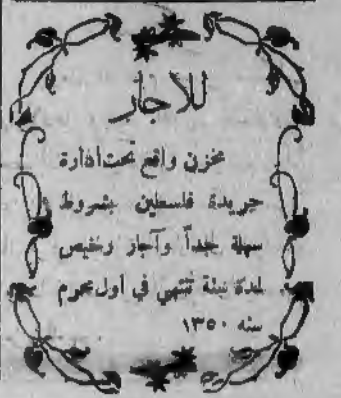 للأجار
مخزن واقع تحت ادارة
جريدة فلسطين بشروط
سهلة جداً وآجار رخيص
لمدة سنة تنتهي في اول محرم
سنه ١٣٥٠